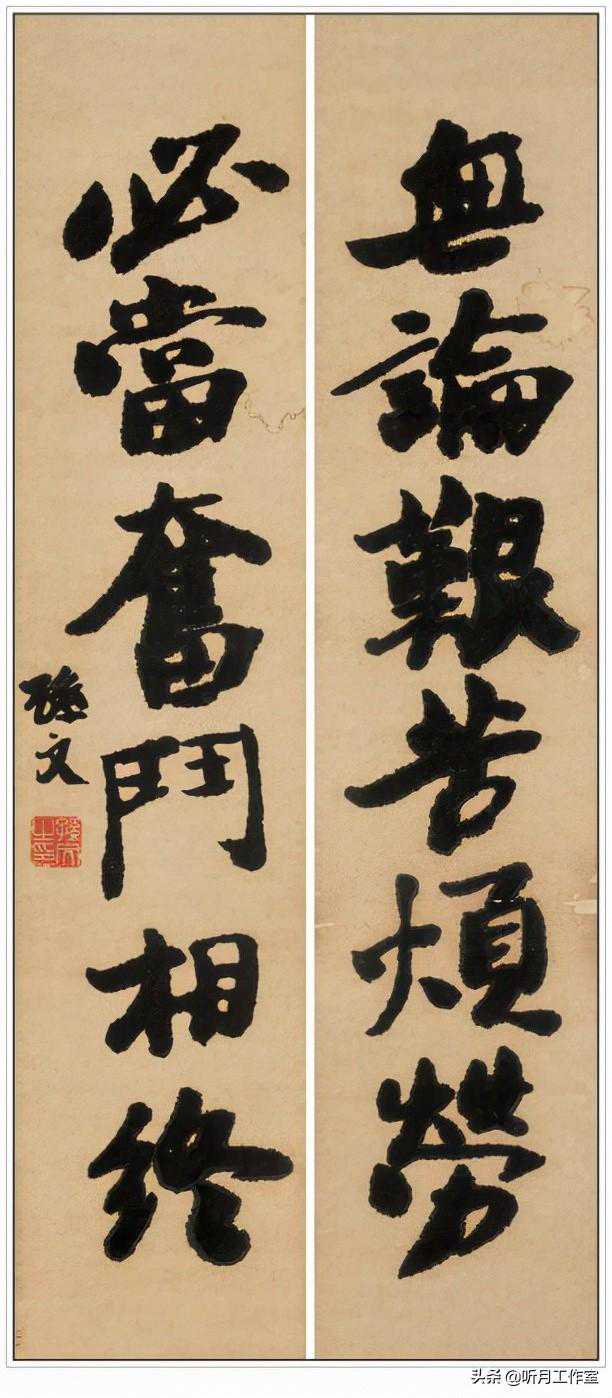 無論艱苦煩勞
必當奮鬥相終
孫文
孫文之印
头条 @听月工作室